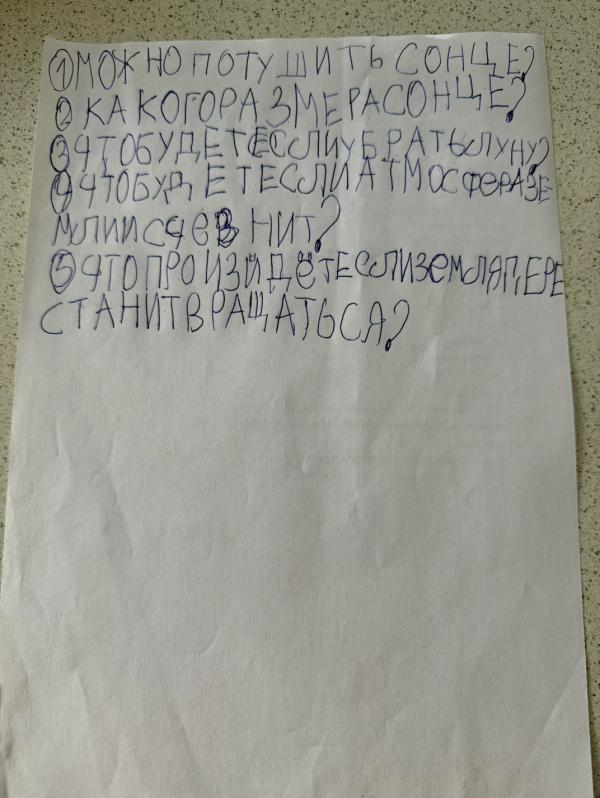 ①МОЖНО ПОТУШИТЬ СОНЦЕ?
② КАКОГО РАЗМЕРА СОНЦЕ?
③ЧТО БУДЕТ ЕСЛИ УБРАТЬ ЛУНУ?
④ЧТО БУДЕТ ЕСЛИ АТМОСФЕРА ЗЕ
МЛИ ИСЧЕВНИТ?
⑤ ЧТО ПРОИЗЙДЁТ ЕСЛИ ЗЕМЛЯ ПЕРЕ
СТАНИТ ВРАЩАТЬСЯ?